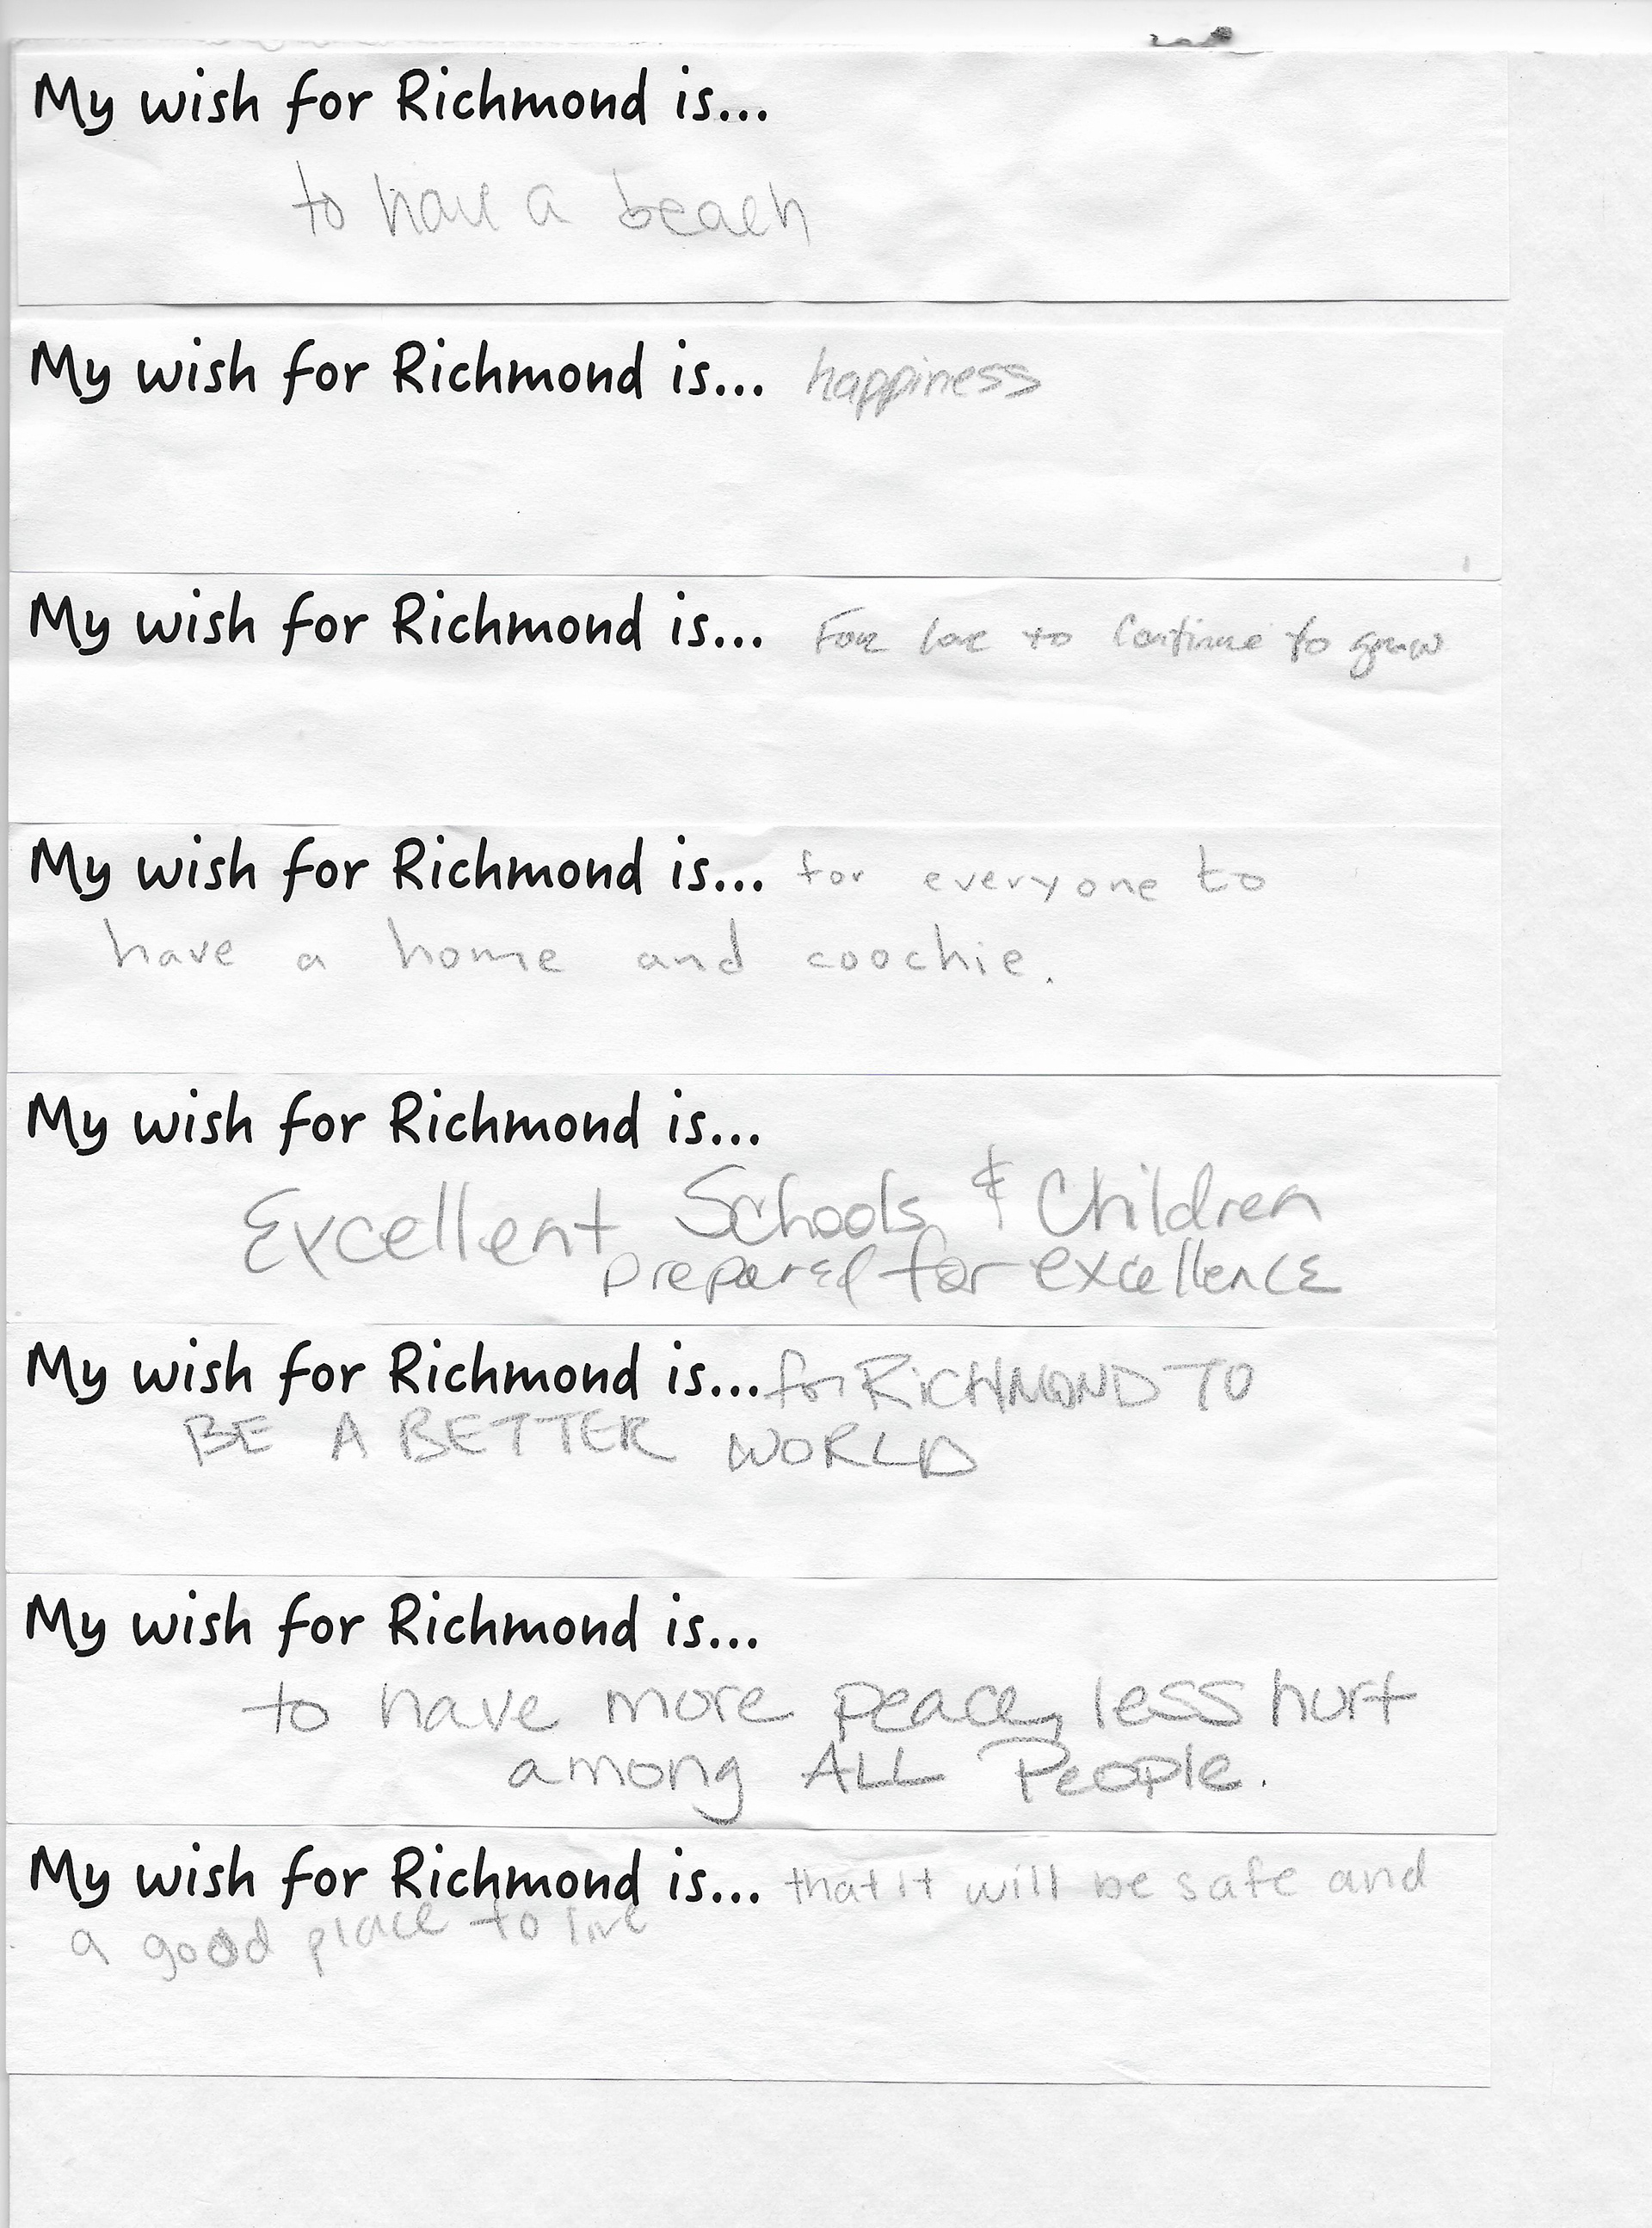 My wish for Richmond is...
to have a beach
My wish for Richmond is... happiness
My wish for Richmond is... For love to continue to grow
My wish for Richmond is... for everyone to
have a home and coochie.
My wish for Richmond is...
Excellent Schools & Children
prepared for excellence
My wish for Richmond is... for RICHMOND TO
BE A BETTER WORLD
My wish for Richmond is...
to have more peace, less hurt
among ALL People.
My wish for Richmond is... that it will be safe and
a good place to live